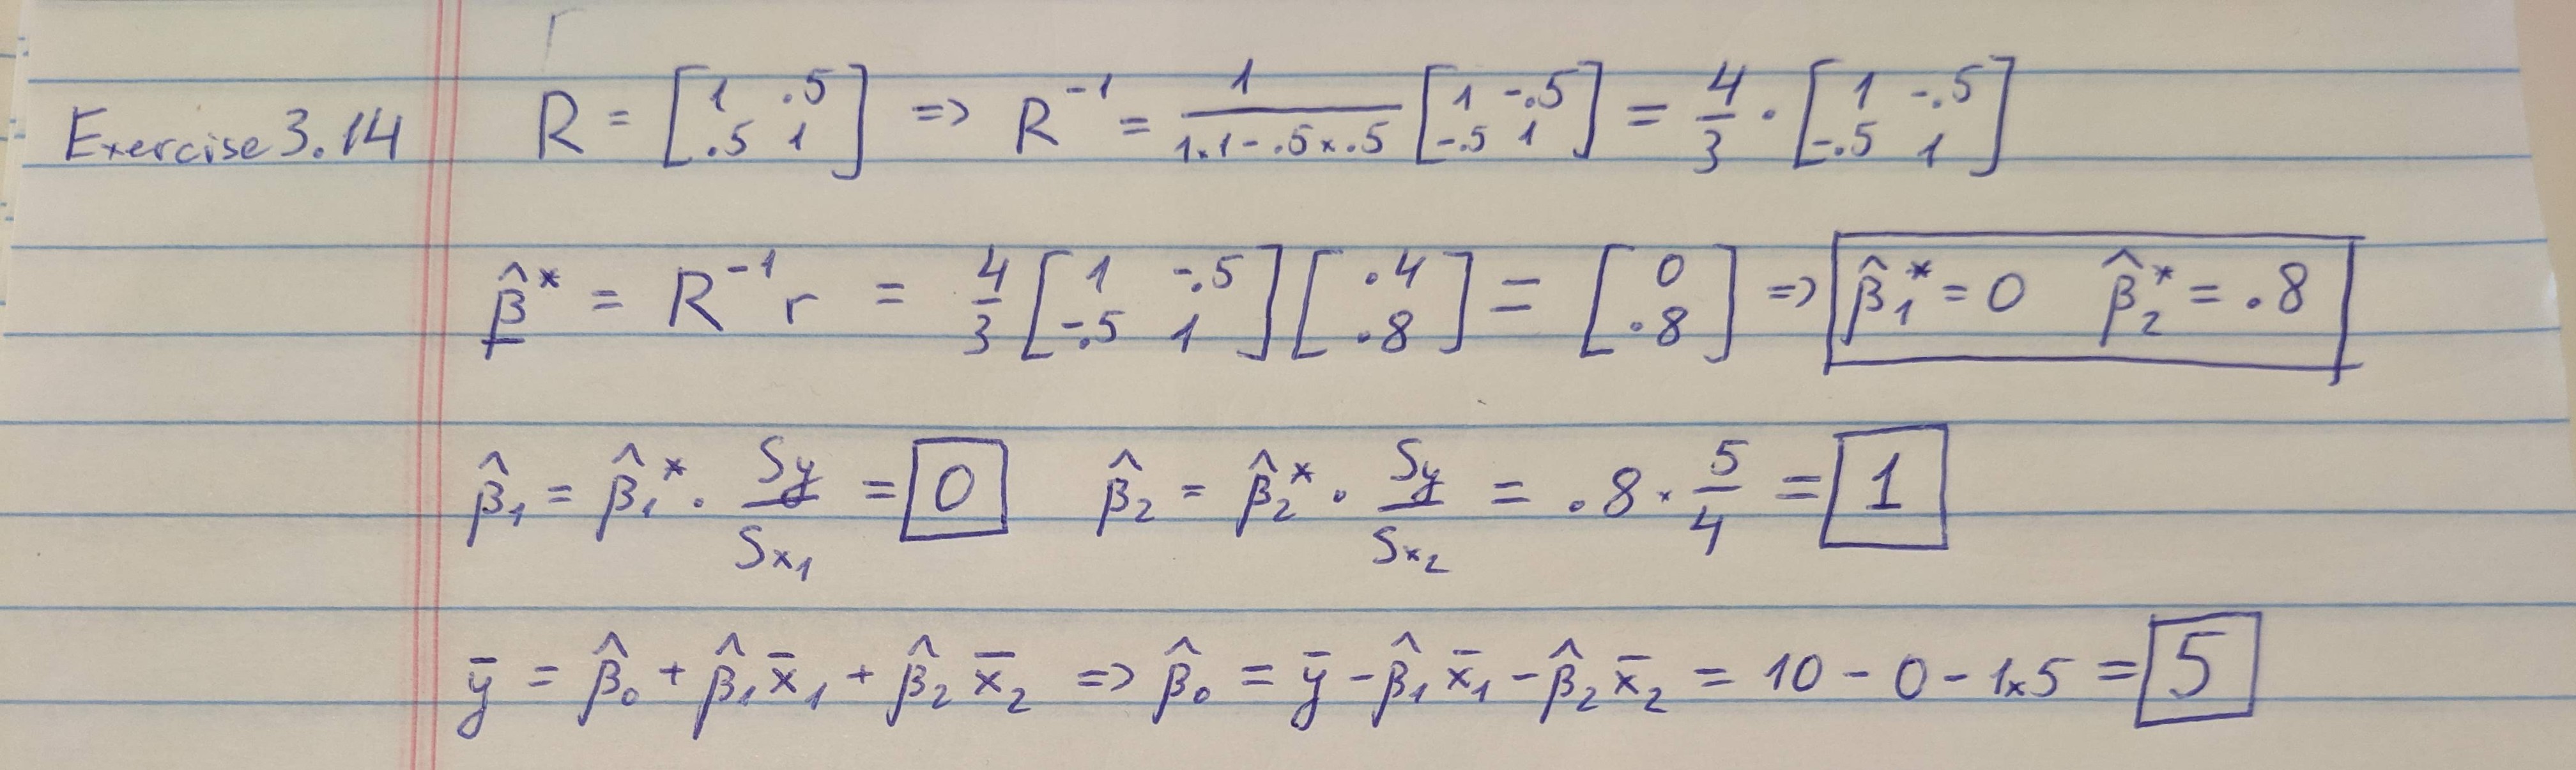 Exercise 3.14 R = [1 .5; .5 1] => R⁻¹ = 1/(1·1 - .5×.5) [1 -.5; -.5 1] = 4/3 · [1 -.5; -.5 1]
β̂* = R⁻¹ r = 4/3 [1 -.5; -.5 1] [.4; .8] = [0; .8] => β̂₁* = 0 β̂₂* = .8
β̂₁ = β̂₁* · Sy/Sx₁ = 0 β̂₂ = β̂₂* · Sy/Sx₂ = .8 · 5/4 = 1
ȳ = β̂₀ + β̂₁ x̄₁ + β̂₂ x̄₂ => β̂₀ = ȳ - β̂₁ x̄₁ - β̂₂ x̄₂ = 10 - 0 - 1×5 = 5